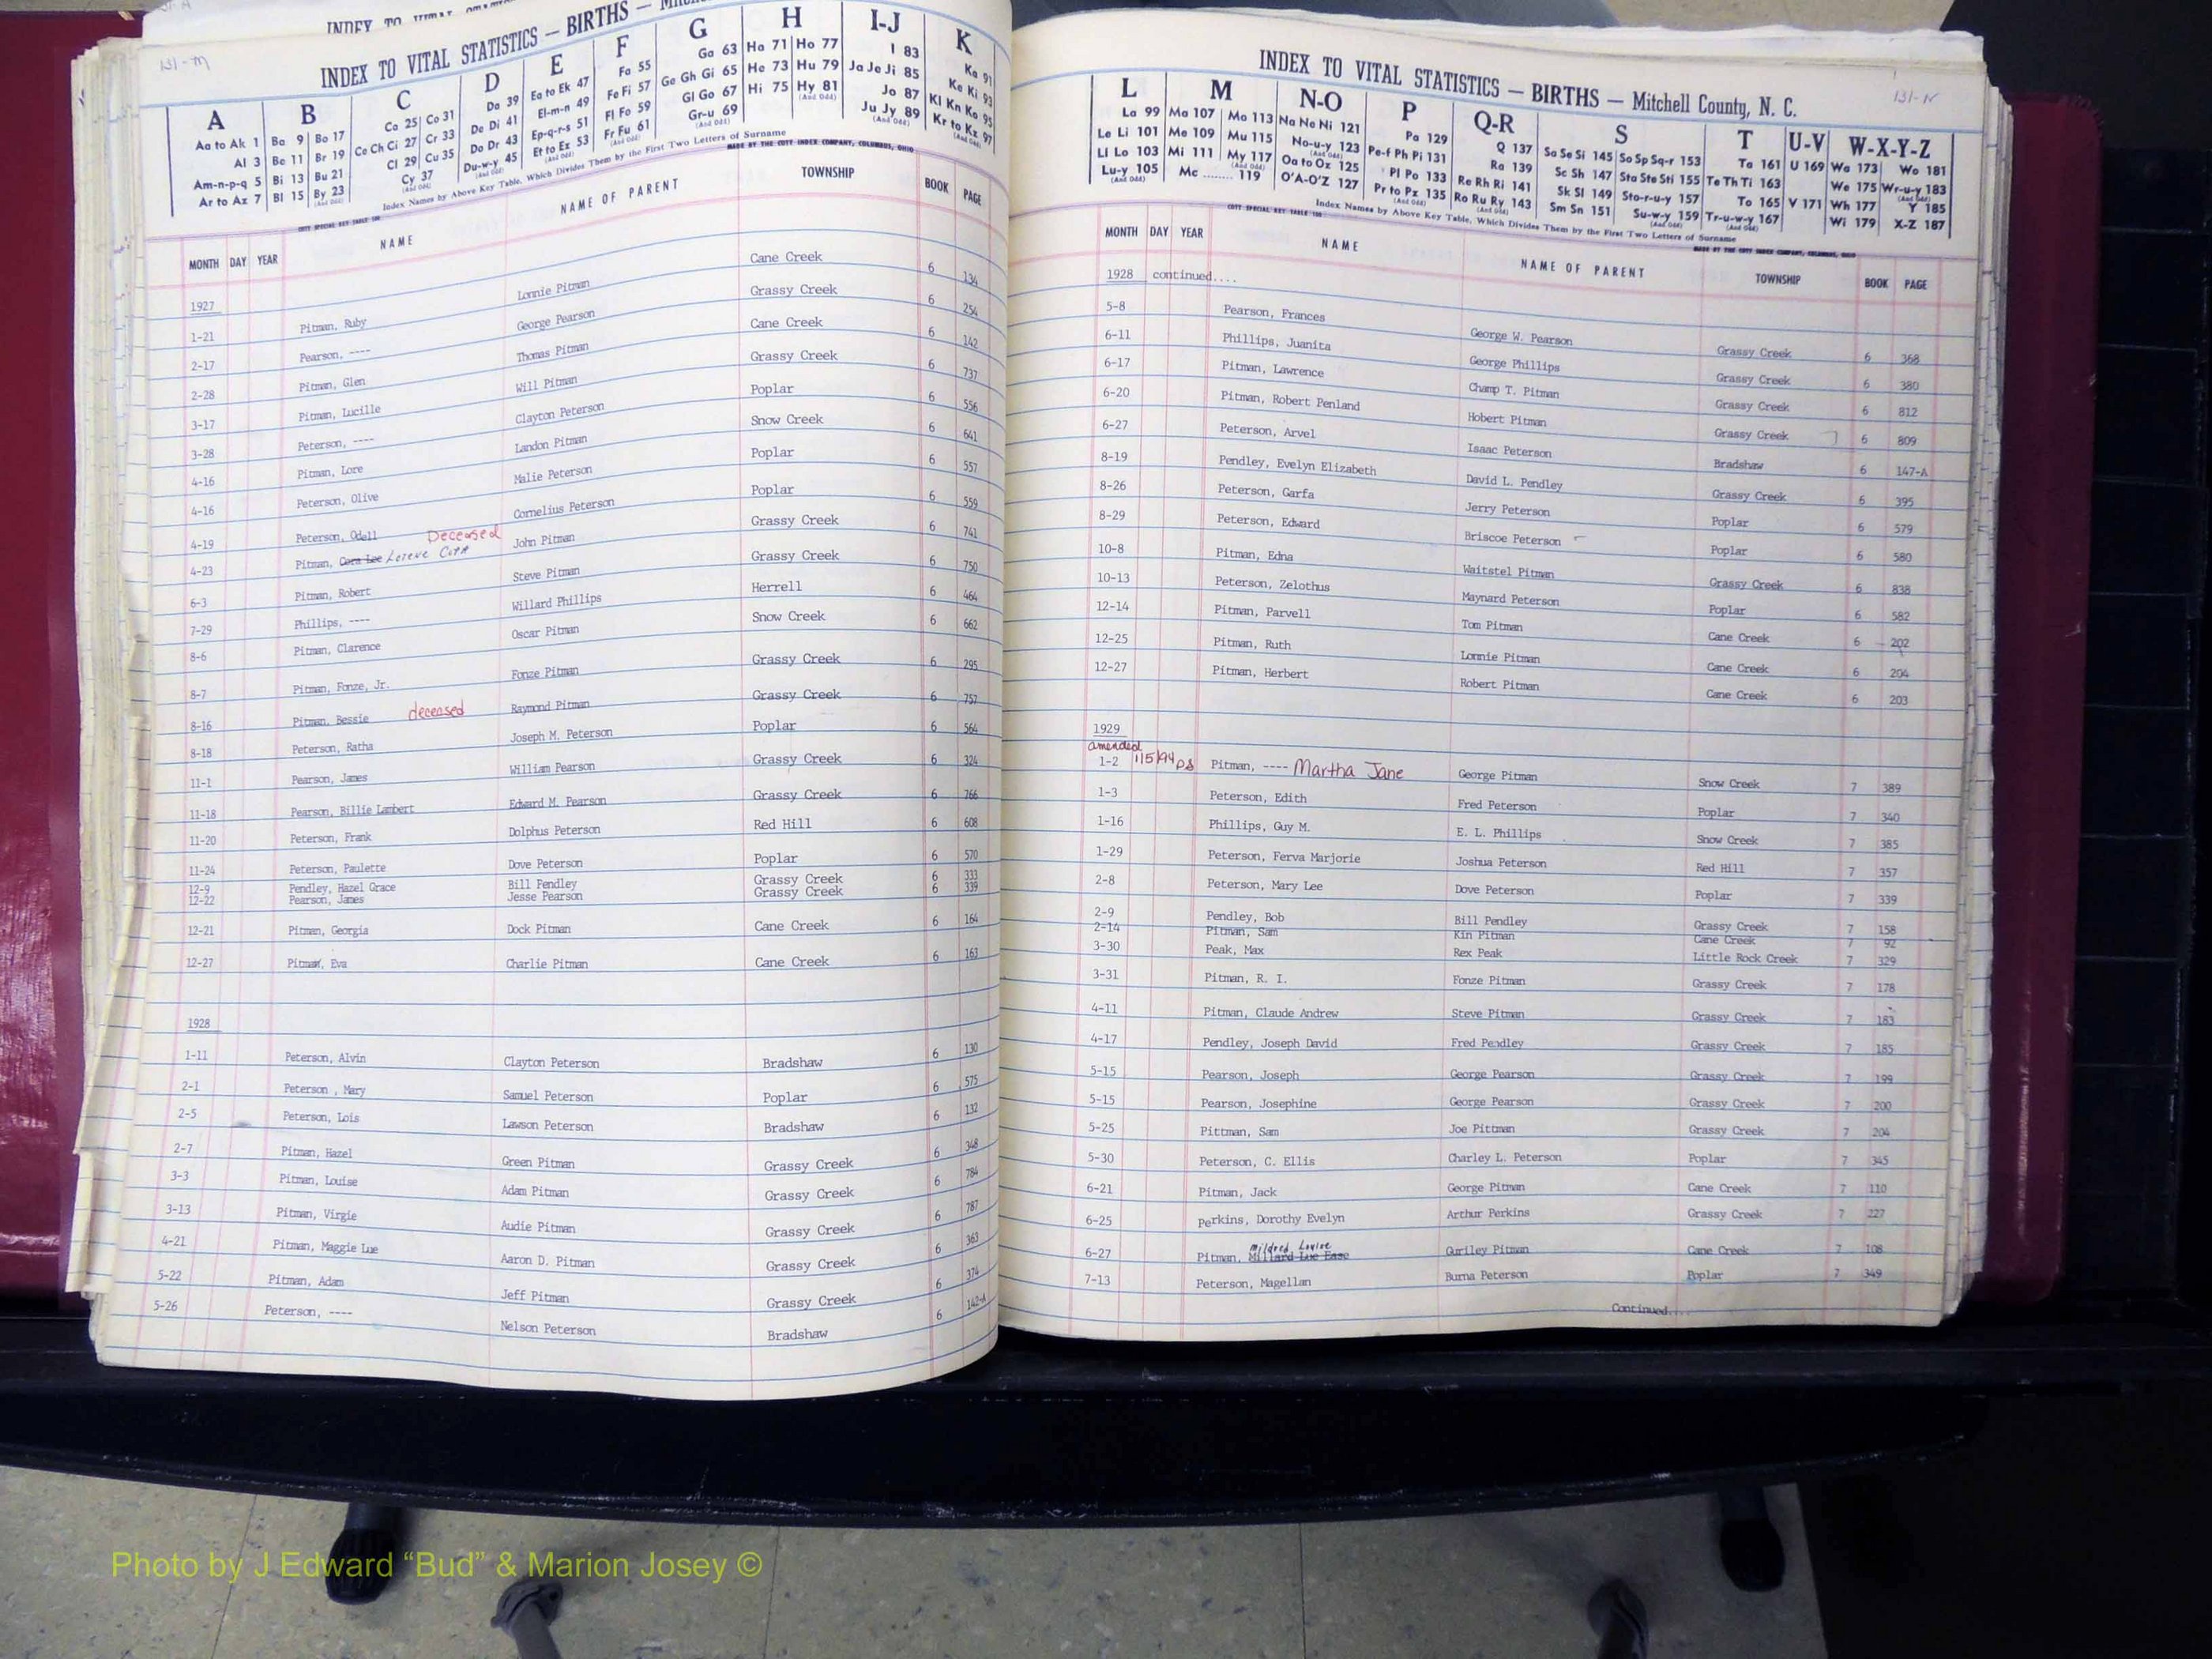 131-M
INDEX TO VITAL STATISTICS — BIRTHS —
A B C D E F G H I-J K
Aa to Ak 1 Ba 9 Bo 17 Ca 25 Co 31 Da 39 Ea to Ek 47 Fa 55 Ga 63 Ha 71 Ho 77 I 83 Ka 91
Al 3 Be 11 Br 19 Ce Ch Ci 27 Cr 33 De Di 41 El-m-n 49 Fe Fi 57 Ge Gh Gi 65 He 73 Hu 79 Ja Je Ji 85 Ke Ki 93
Am-n-p-q 5 Bi 13 Bu 21 Cl 29 Cu 35 Do Dr 43 Ep-q-r-s 51 Fl Fo 59 Gl Go 67 Hi 75 Hy 81 Jo 87 Kl Kn Ko 95
Ar to Az 7 Bl 15 By 23 Cy 37 Du-w-y 45 Et to Ex 53 Fr Fu 61 Gr-u 69 Ju Jy 89 Kr to Kz 97
Index Names by Above Key Table, Which Divides Them by the First Two Letters of Surname
MADE BY THE COTT INDEX COMPANY, COLUMBUS, OHIO
MONTH DAY YEAR NAME NAME OF PARENT TOWNSHIP BOOK PAGE
1927
1-21 Pitman, Ruby Lonnie Pitman Cane Creek 6 134
2-17 Pearson, ---- George Pearson Grassy Creek 6 254
2-28 Pitman, Glen Thomas Pitman Cane Creek 6 142
3-17 Pitman, Lucille Will Pitman Grassy Creek 6 737
3-28 Peterson, ---- Clayton Peterson Poplar 6 556
4-16 Pitman, Lore Landon Pitman Snow Creek 6 641
4-16 Peterson, Olive Malie Peterson Poplar 6 557
4-19 Peterson, Odell Deceased Cornelius Peterson Poplar 6 559
4-23 Pitman, Cora Lee John Pitman Grassy Creek 6 741
6-3 Pitman, Robert Steve Pitman Grassy Creek 6 750
7-29 Phillips, ---- Willard Phillips Herrell 6 464
8-6 Pitman, Clarence Oscar Pitman Snow Creek 6 662
8-7 Pitman, Fonze, Jr. Fonze Pitman Grassy Creek 6 295
8-16 Pitman, Bessie deceased Raymond Pitman Grassy Creek 6 757
8-18 Peterson, Ratha Joseph M. Peterson Poplar 6 564
11-1 Pearson, James William Pearson Grassy Creek 6 324
11-18 Pearson, Billie Lambert Edward M. Pearson Grassy Creek 6 766
11-20 Peterson, Frank Dolphus Peterson Red Hill 6 608
11-24 Peterson, Paulette Dove Peterson Poplar 6 570
12-9 Pendley, Hazel Grace Bill Pendley Grassy Creek 6 333
12-22 Pearson, James Jesse Pearson Grassy Creek 6 339
12-21 Pitman, Georgia Dock Pitman Cane Creek 6 164
12-27 Pitman, Eva Charlie Pitman Cane Creek 6 163
1928
1-11 Peterson, Alvin Clayton Peterson Bradshaw 6 130
2-1 Peterson , Mary Samuel Peterson Poplar 6 575
2-5 Peterson, Lois Lawson Peterson Bradshaw 6 132
2-7 Pitman, Hazel Green Pitman Grassy Creek 6 348
3-3 Pitman, Louise Adam Pitman Grassy Creek 6 784
3-13 Pitman, Virgie Audie Pitman Grassy Creek 6 787
4-21 Pitman, Maggie Lue Aaron D. Pitman Grassy Creek 6 363
5-22 Pitman, Adam Jeff Pitman Grassy Creek 6 374
5-26 Peterson, ---- Nelson Peterson Bradshaw 6 142-A
131-N
INDEX TO VITAL STATISTICS — BIRTHS — Mitchell County, N. C.
L M N-O P Q-R S T U-V W-X-Y-Z
La 99 Ma 107 Mo 113 Na Ne Ni 121 Pa 129 Q 137 Sa Se Si 145 So Sp Sq-r 153 Ta 161 U 169 Wa 173 Wo 181
Le Li 101 Me 109 Mu 115 No-u-y 123 Pe-f Ph Pi 131 Ra 139 Sc Sh 147 Sta Ste Sti 155 Te Th Ti 163 We 175 Wr-u-y 183
Ll Lo 103 Mi 111 My 117 Oa to Oz 125 Pl Po 133 Re Rh Ri 141 Sk Sl 149 Sto-r-u-y 157 To 165 V 171 Wh 177 Y 185
Lu-y 105 Mc ........ 119 O'A-O'Z 127 Pr to Pz 135 Ro Ru Ry 143 Sm Sn 151 Su-w-y 159 Tr-u-w-y 167 Wi 179 X-Z 187
Index Names by Above Key Table, Which Divides Them by the First Two Letters of Surname
MONTH DAY YEAR NAME NAME OF PARENT TOWNSHIP BOOK PAGE
1928 continued....
5-8 Pearson, Frances George W. Pearson Grassy Creek 6 368
6-11 Phillips, Juanita George Phillips Grassy Creek 6 380
6-17 Pitman, Lawrence Champ T. Pitman Grassy Creek 6 812
6-20 Pitman, Robert Penland Hobert Pitman Grassy Creek 6 809
6-27 Peterson, Arvel Isaac Peterson Bradshaw 6 147-A
8-19 Pendley, Evelyn Elizabeth David L. Pendley Grassy Creek 6 395
8-26 Peterson, Garfa Jerry Peterson Poplar 6 579
8-29 Peterson, Edward Briscoe Peterson Poplar 6 580
10-8 Pitman, Edna Waitstel Pitman Grassy Creek 6 838
10-13 Peterson, Zelothus Maynard Peterson Poplar 6 582
12-14 Pitman, Parvell Tom Pitman Cane Creek 6 202
12-25 Pitman, Ruth Lonnie Pitman Cane Creek 6 204
12-27 Pitman, Herbert Robert Pitman Cane Creek 6 203
1929
amended
1-2 1/5/94 DS Pitman, ---- Martha Jane George Pitman Snow Creek 7 389
1-3 Peterson, Edith Fred Peterson Poplar 7 340
1-16 Phillips, Guy M. E. L. Phillips Snow Creek 7 385
1-29 Peterson, Ferva Marjorie Joshua Peterson Red Hill 7 357
2-8 Peterson, Mary Lee Dove Peterson Poplar 7 339
2-9 Pendley, Bob Bill Pendley Grassy Creek 7 158
2-14 Pitman, Sam Kin Pitman Cane Creek 7 92
3-30 Peak, Max Rex Peak Little Rock Creek 7 329
3-31 Pitman, R. I. Fonze Pitman Grassy Creek 7 178
4-11 Pitman, Claude Andrew Steve Pitman Grassy Creek 7 183
4-17 Pendley, Joseph David Fred Pendley Grassy Creek 7 185
5-15 Pearson, Joseph George Pearson Grassy Creek 7 199
5-15 Pearson, Josephine George Pearson Grassy Creek 7 200
5-25 Pittman, Sam Joe Pittman Grassy Creek 7 204
5-30 Peterson, C. Ellis Charley L. Peterson Poplar 7 345
6-21 Pitman, Jack George Pitman Cane Creek 7 110
6-25 Perkins, Dorothy Evelyn Arthur Perkins Grassy Creek 7 227
Mildred Louise
6-27 Pitman, Millard Lue Ease Guriley Pitman Cane Creek 7 108
7-13 Peterson, Magellan Burna Peterson Poplar 7 349
Continued....
Photo by J Edward “Bud” & Marion Josey ©